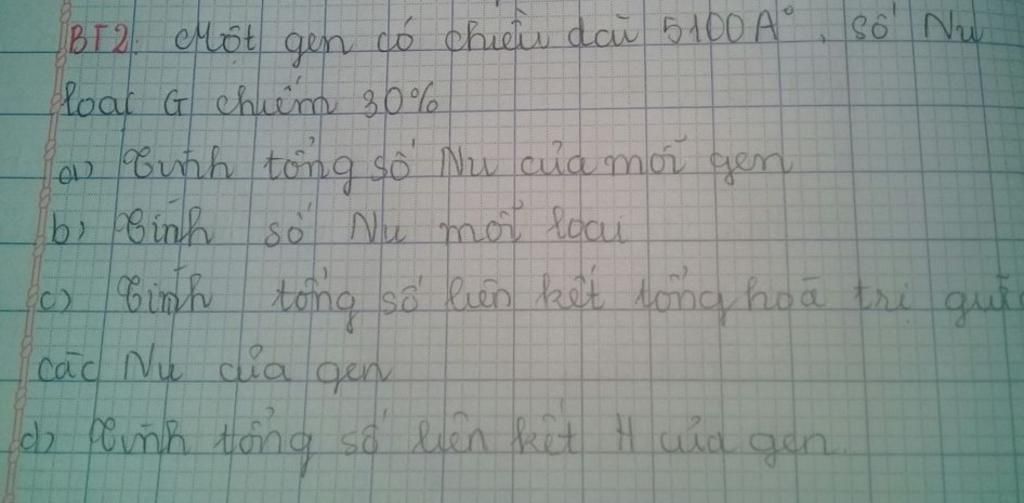 BT2. Một gen có chiều dài 5100A°, số Nu
loại G chiếm 30%
a) Tính tổng số Nu của mỗi gen
b) Tính số Nu mỗi loại
c) Tính tổng số liên kết cộng hoá trị giữa
các Nu của gen
d) Tính tổng số liên kết H của gen.